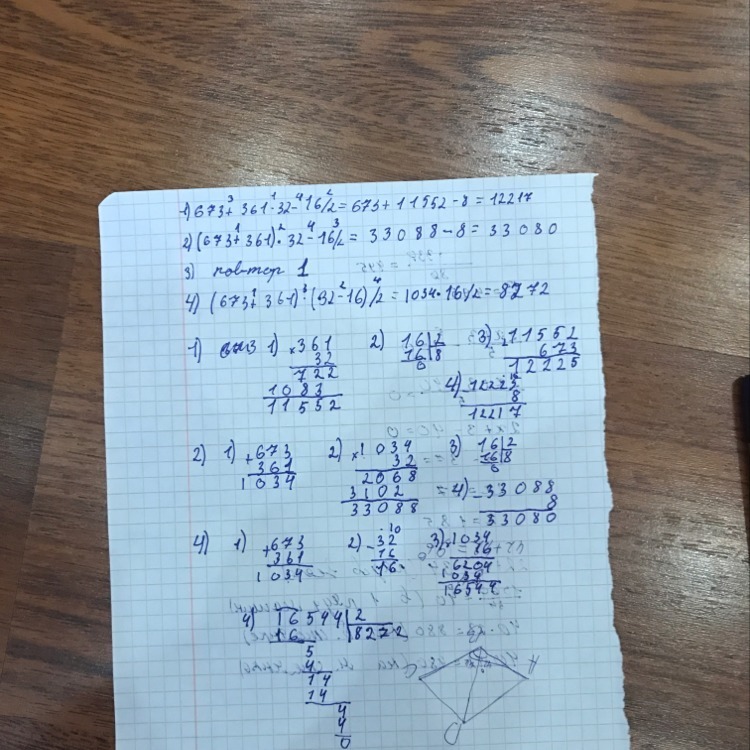 1) 673 + 361 · 32 - 16/2 = 673 + 11552 - 8 = 12217
2) (673 + 361) · 32 - 16/2 = 33088 - 8 = 33080
3) повтор 1
4) (673 + 361) · (32 - 16)/2 = 1034 · 16/2 = 8272
1) 1) × 361 2) 16 | 2 3) 11552
32 16 | 8 673
722 0 12225
1083 4) - 12225
11552 8
12217
2) 1) + 673 2) × 1034 3) 16 | 2
361 32 16 | 8
1034 2068 0
3102 4) - 33088
33088 8
33080
4) 1) + 673 2) - 32 3) × 1034
361 16 16
1034 16 6204
1034
16544
4) 16544 | 2
16 | 8272
5
4
14
14
4
4
0